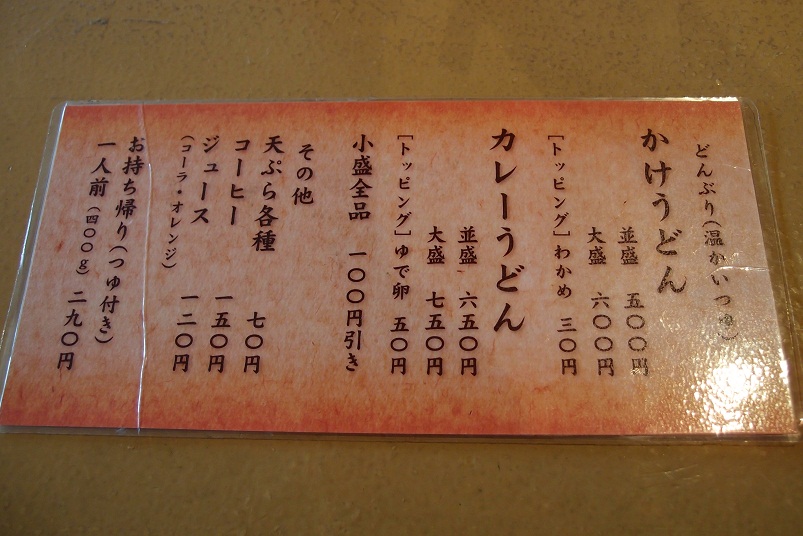 どんぶり(温かいつゆ)
かけうどん
並盛 五〇〇円
大盛 六〇〇円
[トッピング]わかめ 三〇円
カレーうどん
並盛 六五〇円
大盛 七五〇円
[トッピング]ゆで卵 五〇円
小盛全品 一〇〇円引き
その他
天ぷら各種 七〇円
コーヒー 一五〇円
ジュース 一二〇円
(コーラ・オレンジ)
お持ち帰り(つゆ付き)
一人前(四〇〇g) 二九〇円